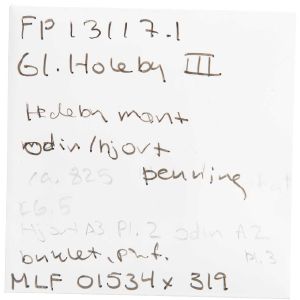 FP 13117.1
Gl. Holeby III
Hedeby mønt
odin/hjort
ca. 825 penning
CG.5
Hjort A3 Pl. 2 Odin A2
buklet, prf. Pl. 3
MLF 01534x319